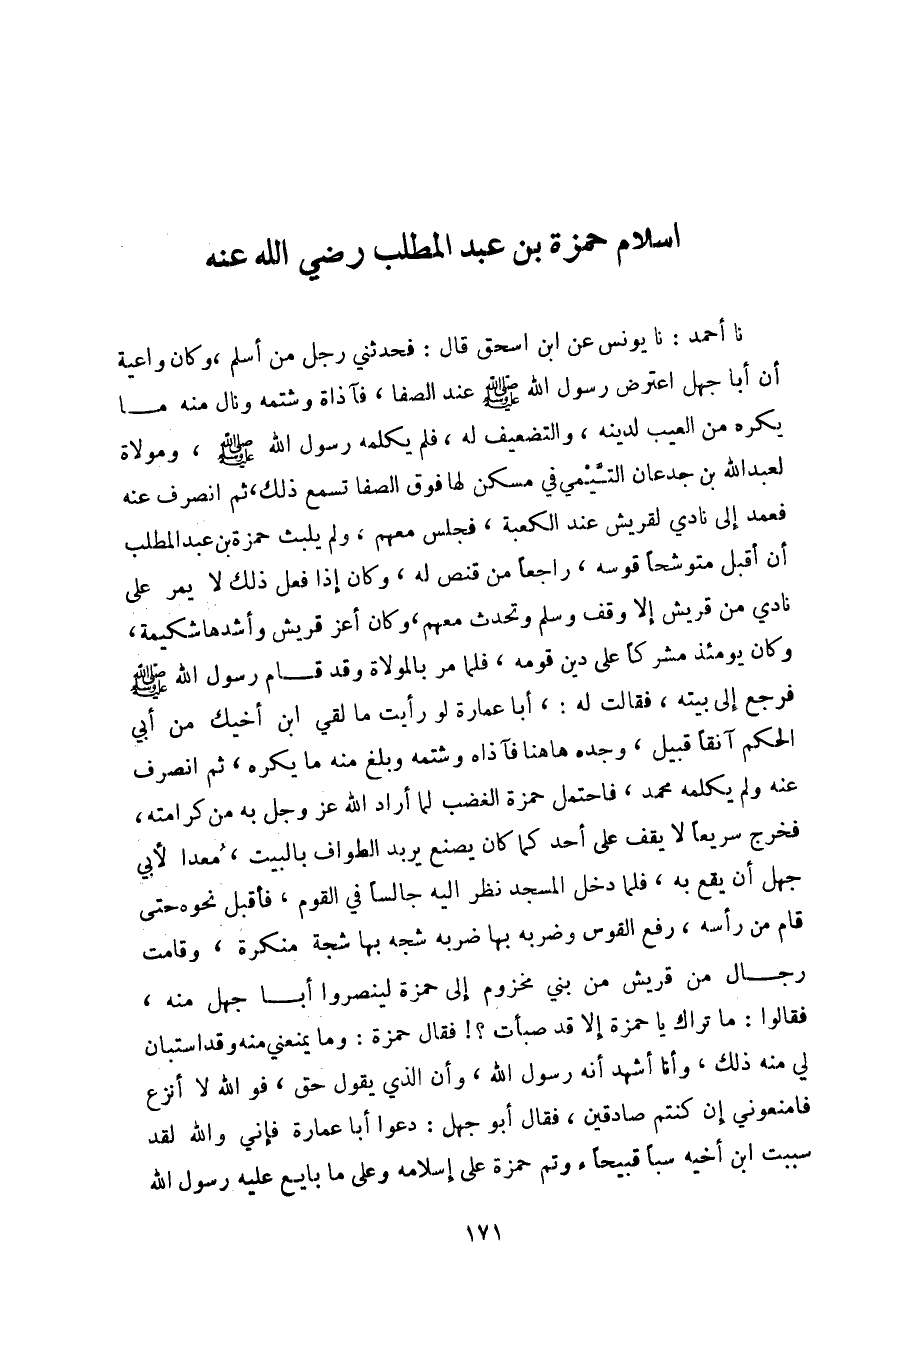 اسلام حمزة بن عبد المطلب رضي الله عنه
نا أحمد : نا يونس عن ابن اسحق قال : فحدثني رجل من أسلم ،وكان واعية
أن أبا جهل اعترض رسول الله ﷺ عند الصفا ، فآذاة وشتمه ونال منه مـــا
يكره من العيب لدينه ، والتضعيف له ، فلم يكلمه رسول الله ﷺ ، ومولاة
لعبدالله بن جدعان التَّيْمي في مسكن لها فوق الصفا تسمع ذلك،ثم انصرف عنه
فعمد إلى نادي لقريش عند الكعبة ، فجلس معهم ، ولم يلبث حمزة بن عبدالمطلب
أن أقبل متوشحاً قوسه ، راجعاً من قنص له ، وكان إذا فعل ذلك لا يمر على
نادي من قريش إلا وقف وسلم وتحدث معهم،وكان أعز قريش وأشدها شكيمة،
وكان يومئذ مشركاً على دين قومه ، فلما مر بالمولاة وقد قـــام رسول الله ﷺ
فرجع إلى بيته ، فقالت له : ، أبا عمارة لو رأيت ما لقي ابن أخيك من أبي
الحكم آنقاً قبيل ، وجده هاهنا فآذاه وشتمه وبلغ منه ما يكره ، ثم انصرف
عنه ولم يكلمه محمد ، فاحتمل حمزة الغضب لما أراد الله عز وجل به من كرامته،
فخرج سريعاً لا يقف على أحد كما كان يصنع يريد الطواف بالبيت ، ُمعدا لأبي
جهل أن يقع به ، فلما دخل المسجد نظر اليه جالساً في القوم ، فأقبل نحوه حتى
قام من رأسه ، رفع القوس وضربه بها ضربه شجه بها شجة منكرة ، وقامت
رجـــال من قريش من بني مخزوم إلى حمزة لينصروا أبـــا جهل منه ،
فقالوا : ما تراك يا حمزة إلا قد صبأت ؟! فقال حمزة : وما يمنعني منه وقد استبان
لي منه ذلك ، وأنا أشهد أنه رسول الله ، وأن الذي يقول حق ، فو الله لا أنزع
فامنعوني إن كنتم صادقين ، فقال أبو جهل : دعوا أبا عمارة فإني والله لقد
سببت ابن أخيه سباً قبيحاً ، وتم حمزة على إسلامه وعلى ما بايع عليه رسول الله
١٧١